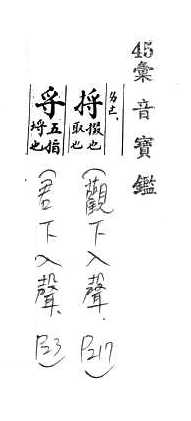 45彙音寶鑑
捋 掇也取也 (觀下入聲. P217)
寽 五指埒也 (君下入聲. P23)